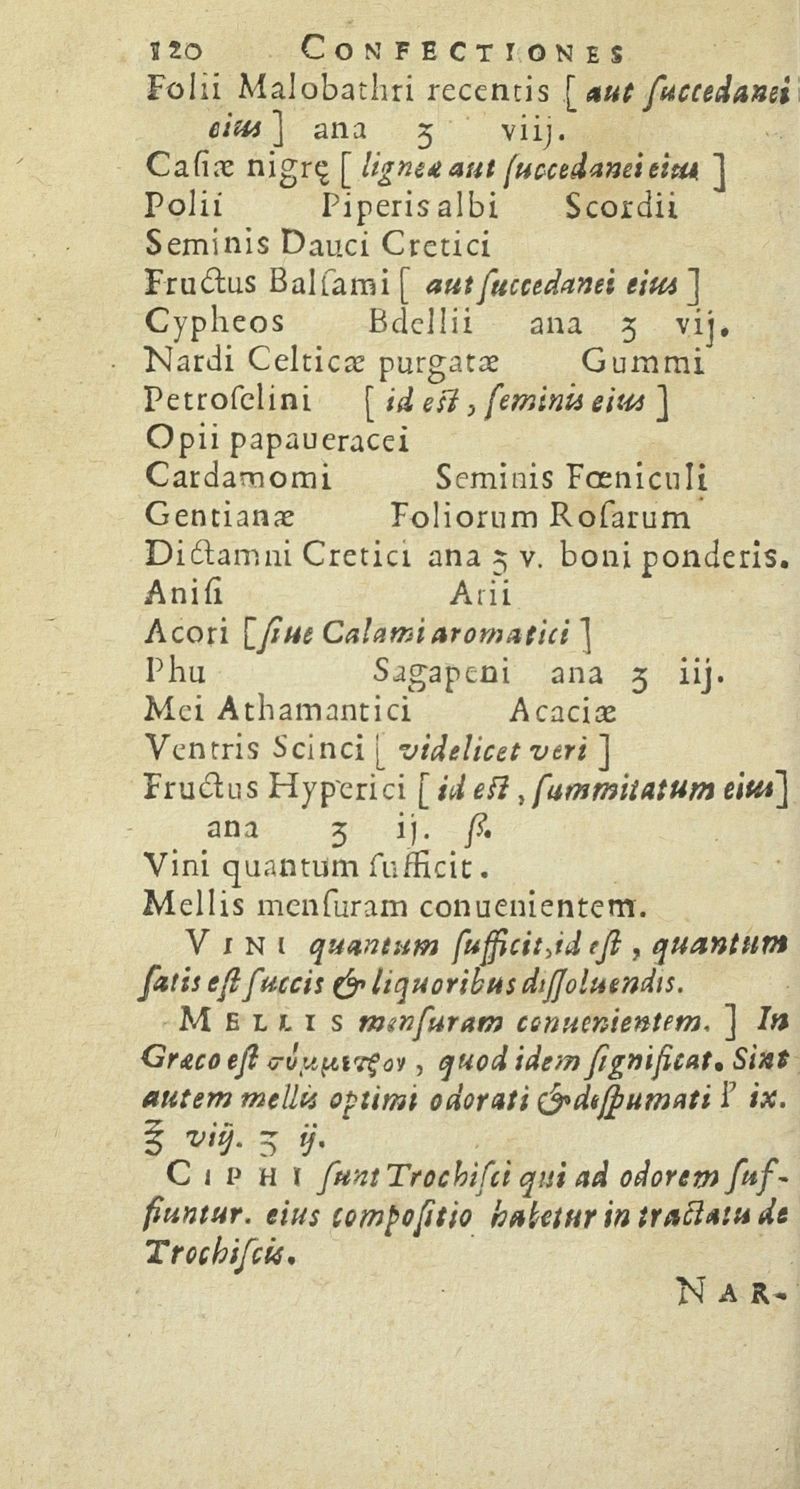 120 CONFECTIONES
Folii Malobathri recentis [ aut ſuccedanei
eius ] ana ʒ viij.
Caſiæ nigrę [ ligneæ aut ſuccedanei eius ]
Polii Piperis albi Scordii
Seminis Dauci Cretici
Fructus Balſami [ aut ſuccedanei eius ]
Cypheos Bdellii ana ʒ vij.
Nardi Celticæ purgatæ Gummi
Petroſelini [ id eſt , ſeminis eius ]
Opii papaueracei
Cardamomi Seminis Fœniculi
Gentianæ Foliorum Roſarum
Dictamni Cretici ana ʒ v. boni ponderis.
Aniſi Arii
Acori [ſiue Calami aromatici ]
Phu Sagapeni ana ʒ iij.
Mei Athamantici Acaciæ
Ventris Scinci [ videlicet veri ]
Fructus Hyperici [ id eſt , ſummitatum eius]
ana ʒ ij. ß.
Vini quantum ſufficit.
Mellis menſuram conuenientem.
VINI quantum ſufficit,id eſt , quantum
ſatis eſt ſuccis & liquoribus diſſoluendis.
MELLIS menſuram conuenientem. ] In
Græco eſt σύμμετρον , quod idem ſignificat. Sint
autem mellis optimi odorati & deſpumati ix.
℥ viij. ʒ ij.
CIPHI ſunt Trochiſci qui ad odorem ſuf-
fiuntur. eius compoſitio habetur in tractatu de
Trochiſcis.
NAR-